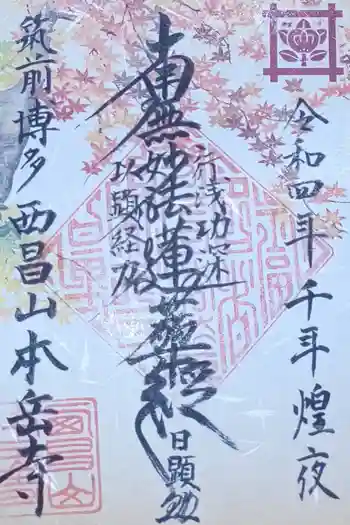 令和四年 千年煌夜
行浅功深
南無妙法蓮華経
以顕経力
日顕
筑前博多 西昌山本岳寺